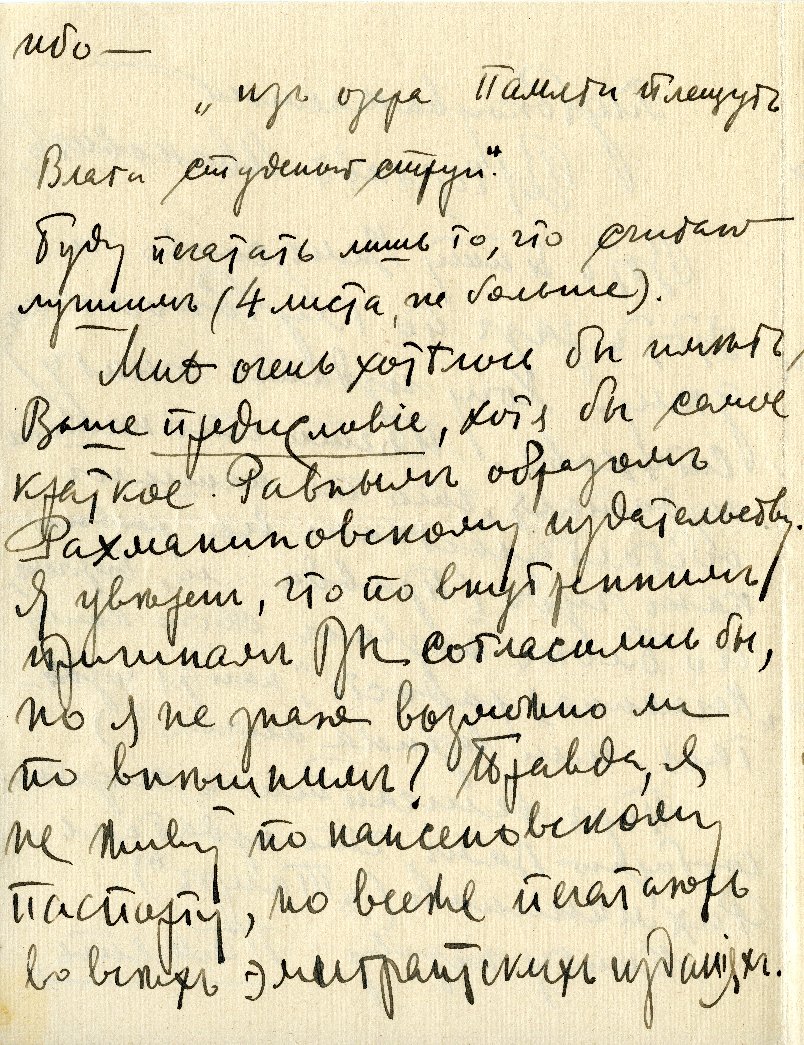 ибо —
„изъ озера Памяти плещутъ
Влаги студеной струи“.
Буду печатать лишь то, что считаю
лучшимъ (4 листа, не больше).
Мнѣ очень хотѣлось бы имѣть
Ваше предисловіе, хотя бы самое
краткое. Равнымъ образомъ
Рахманиновскому издательству.
Я увѣрен, что по внутреннимъ
причинамъ Вы согласились бы,
но я не знаю возможно ли
по внѣшнимъ? Правда, я
не живу по нансеновскому
паспорту, но всеже печатаюсь
во всѣхъ эмигрантскихъ изданіяхъ.